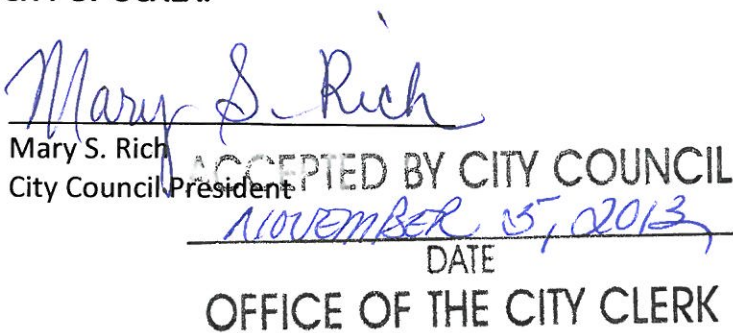 Mary S. Rich
Mary S. Rich
City Council President
ACCEPTED BY CITY COUNCIL
NOVEMBER 5, 2013
DATE
OFFICE OF THE CITY CLERK